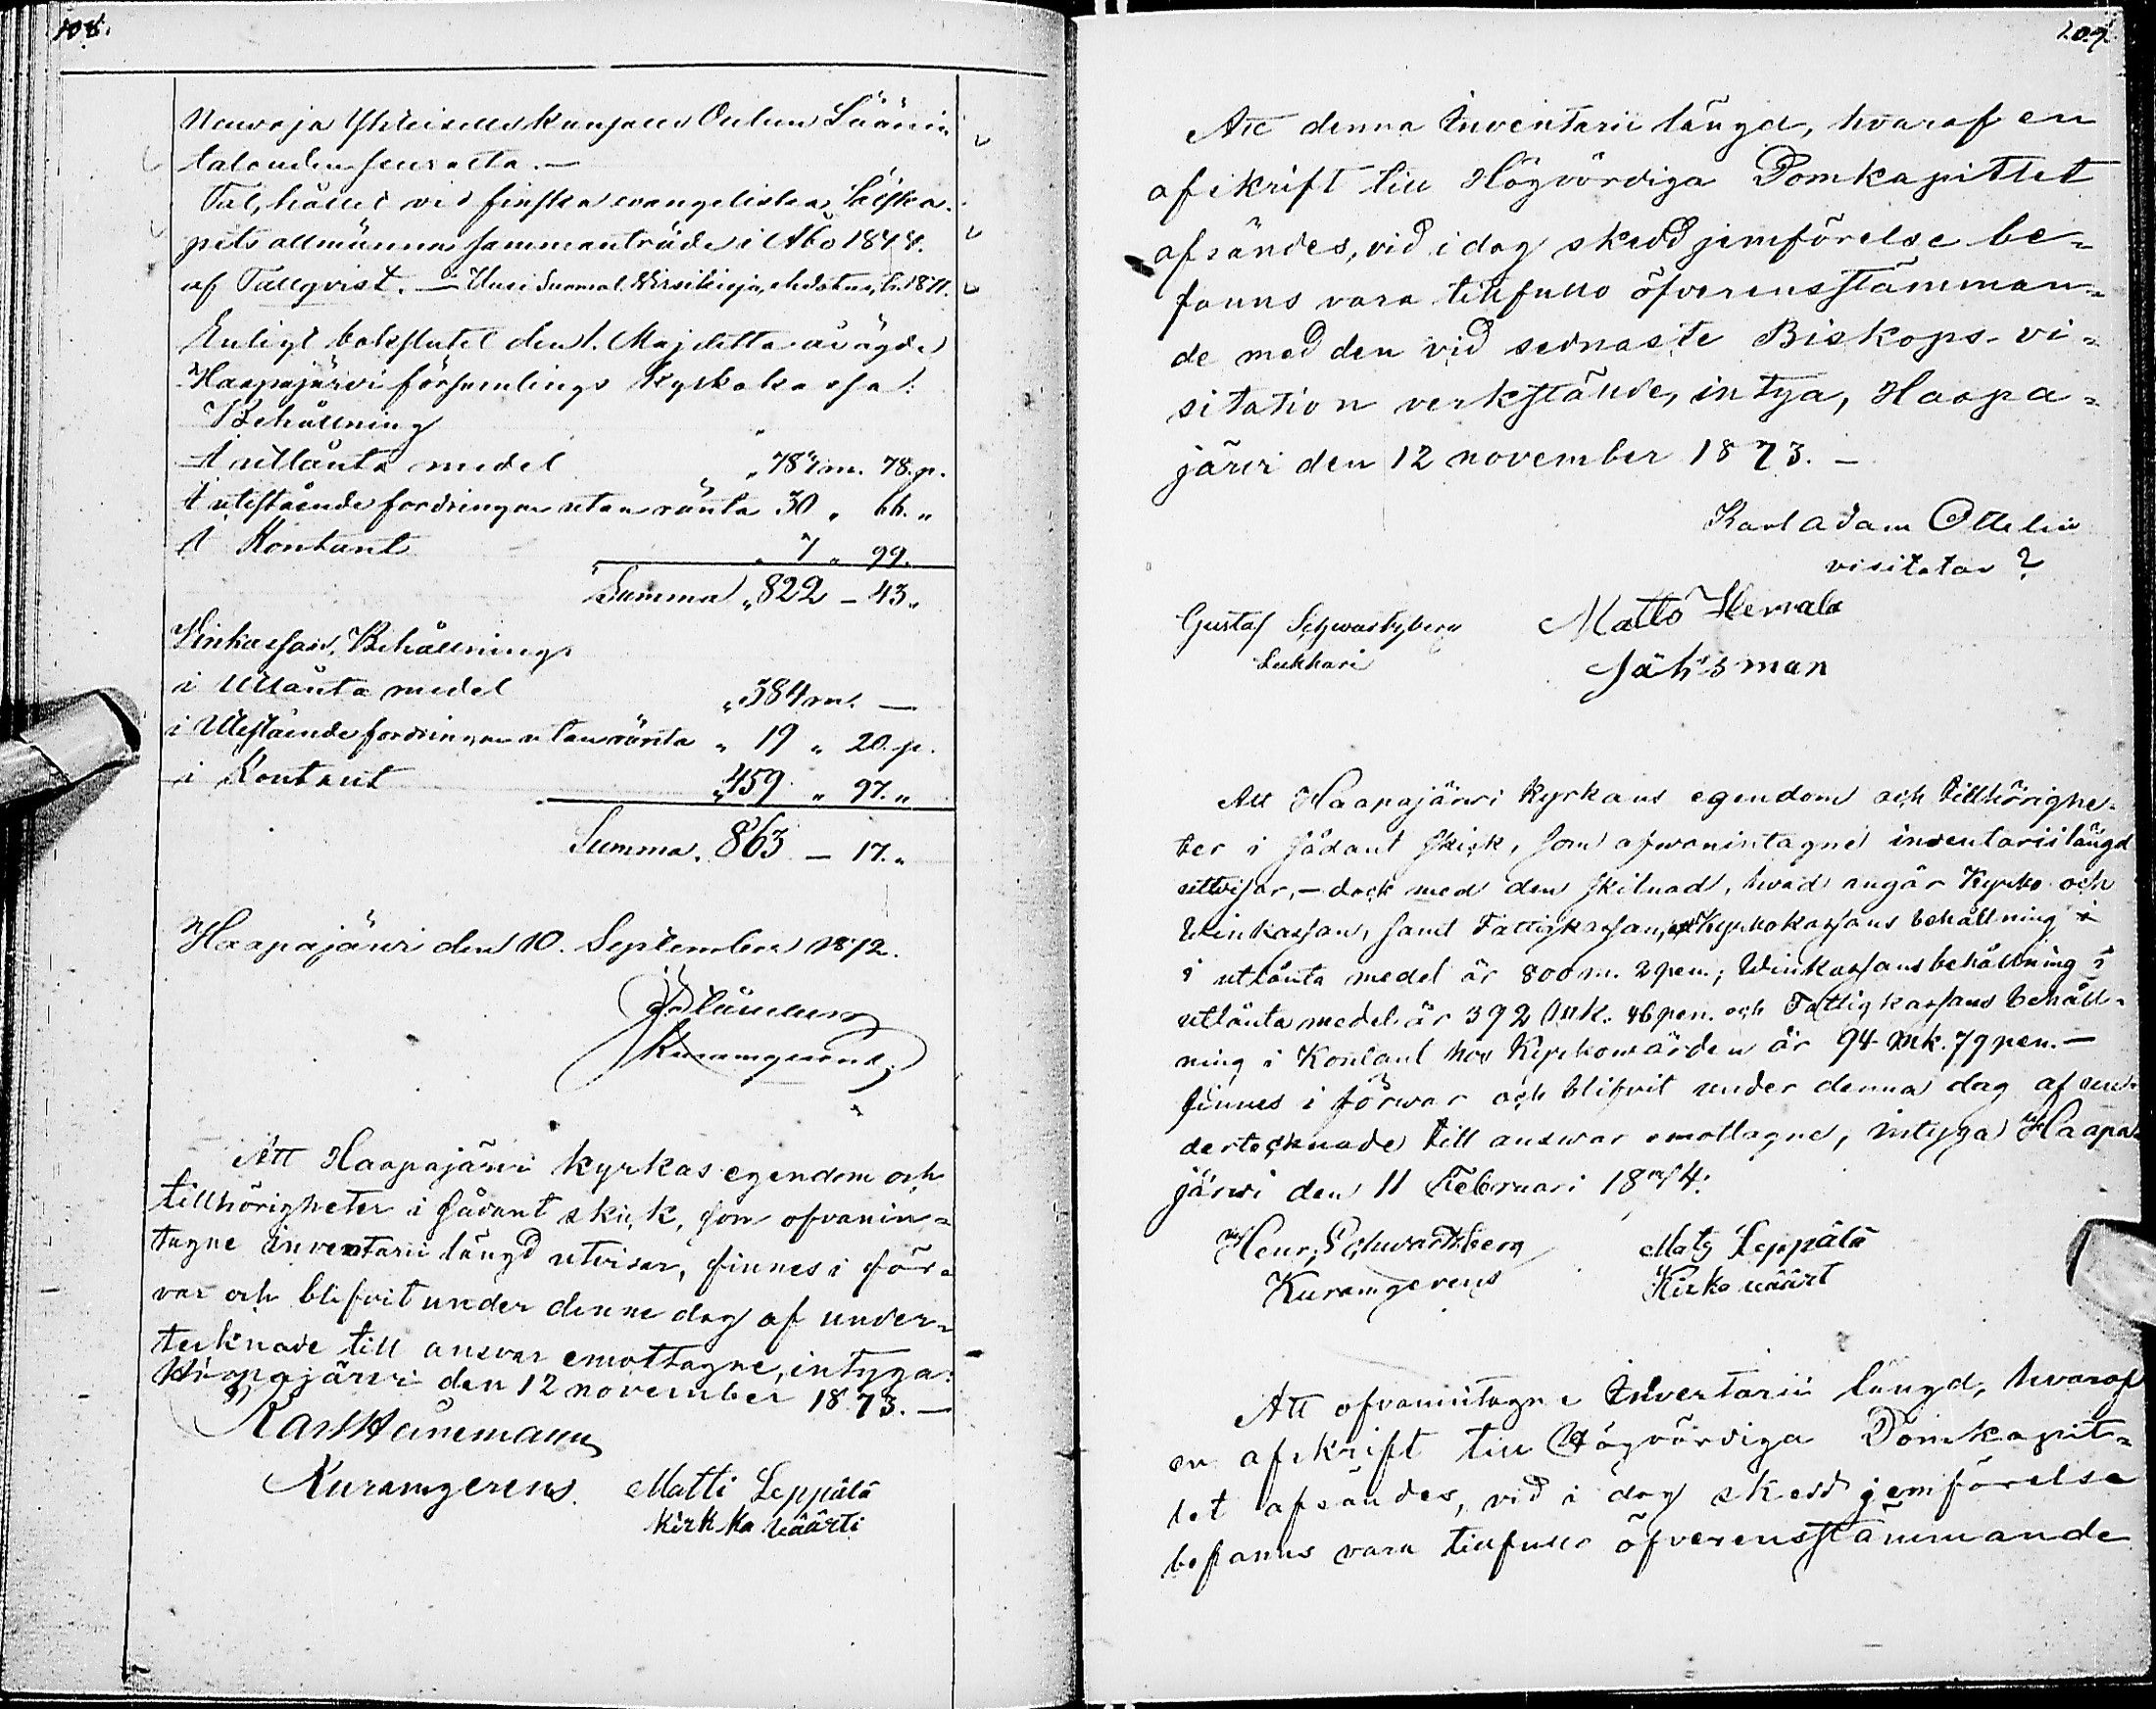 108.
Neuvoja Yhteiselle kansalle Oulun Läänin
talouden seuralta. —
Tal, hållet vid finska evangeliska Sälska-
pets allmänna sammanträde i Åbo 1874.
af Tallqvist. — Uusi Suomal. Wirsikirja, ehdotus, v. 1871.
Enligt bokslutet den 1. Maj detta år ägde
Haapajärvi församlings Kyrkokassa:
Behållning
I utlånta medel " 783 m. 78. p.
I utestående fordringar utan ränta 30 " 66. "
I Kontant " 7 " 99.
Summa " 822 - 43 "
Vinkassan, Behållning
i Utlånta medel " 384 m. —
i Utestående fordringar utan ränta " 19 " 20. p.
i Kontant " 459 " 97. "
Summa. 863 — 17. "
Haapajärvi den 10. September 1872.
Kuramgerens.
Att Haapajärvi kyrkas egendom och
tillhörigheter i sådant skick, som ofvanin-
tagne inventarii längd utvisar, finnes i för-
var och blifvit under denne dag af under-
tecknade till ansvar emottagne, intyga:
Haapajärvi den 12 november 1873. —
Karl Heinemann
Kuramgerens. Matti Leppälä
kirkko väärti
109.
Att denna Inventarii längd, hvaraf en
afskrift till Högvördiga Domkapitlet
afsändes, vid i dag skedd jemförelse be-
fanns vara tillfullo öfverensstämman-
de med den vid sednaste Biskops-vi-
sitation verkstälde, intyga, Haapa-
järvi den 12 november 1873. —
Karl Adam Ottelin
visitator
Gustaf Schwartzberg Matts Hemala
Lukkari Sähsman
Att Haapajärwi Kyrkans egendom och tillhörighe-
ter i sådant skick, som ofwanintagne inventarii längd
utwisar, — dock med den skilnad, hwad angår Kyrko och
Winkassan, samt Fattigkassan, att Kyrkokassans behållning i
i utlånta medel är 800 m. 2 pen.; Winkassans behållning i
utlånta medel är 392 Mk. 46 pen. och Fattigkassans behåll-
ning i Kontant hos Kyrkowärden är 94 mk. 79 pen. —
finnes i förwar och blifvit under denna dag af un-
dertecknade till answar emottagne, intyga Haapa-
järwi den 11 Februari 1874.
Henr. Schwartzberg Mats Leppälä
Kuramgerens Kirko väärt
Att ofvanintagne Inventarii längd, hvaraf
en afskrift till Högvördiga Domkapit-
let afsändes, vid i dag skedd jemförelse
befanns vara tillfullo öfverensstämmande